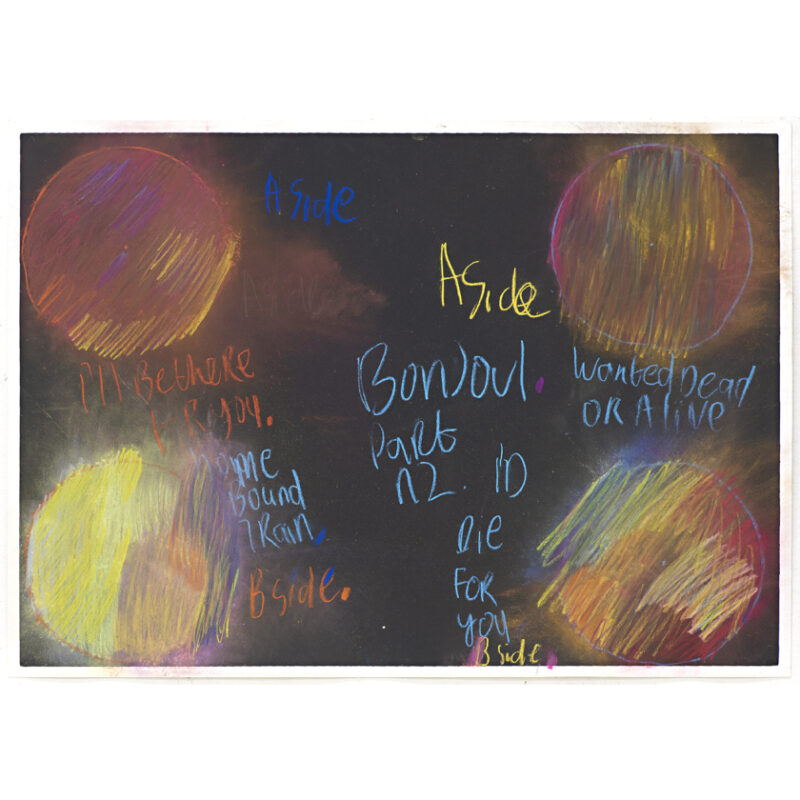 A Side
A Side
A Side
I'll Be there
For you.
BonJoul.
Part
n2. I'D
Wanted Dead
OR Alive
Home
Bound
TRain.
B Side.
Die
FOR
you
B side.